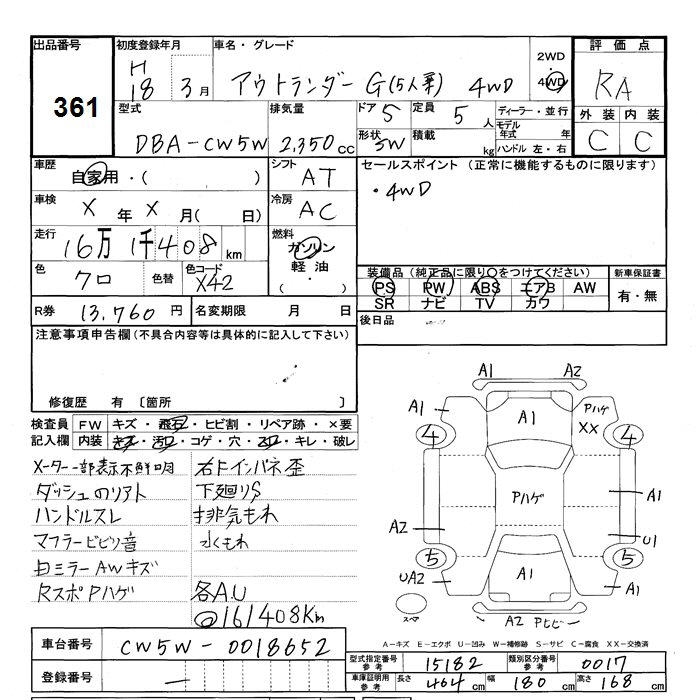 出品番号
361
初度登録年月
H
18 3月
車名・グレード
アウトランダー G(5人乗) 4WD
2WD
・
4WD
評価点
RA
外装 内装
C C
型式
DBA-CW5W
排気量
2,350cc
ドア 5
形状 5W
定員 5人
積載 kg
ディーラー・並行
モデル
年式 年
ハンドル 左・右
車歴
自家用・( )
シフト
AT
車検
X年X月( 日)
冷房
AC
走行
16万1千408km
燃料
ガソリン
軽油
・( )
色
クロ
色替
色コード
X42
R券 13,760円
名変期限 月 日
セールスポイント (正常に機能するものに限ります)
・4WD
装備品 (純正品に限り○をつけてください)
PS PW ABS エアB AW
SR ナビ TV カワ
新車保証書
有・無
後日品
注意事項申告欄(不具合内容等は具体的に記入して下さい)
修復歴 有 〔箇所 〕
検査員
記入欄
FW キズ・飛石・ヒビ割・リペア跡・×要
内装 キズ・汚レ・コゲ・穴・スレ・キレ・破レ
メーター一部表示不鮮明
ダッシュのリアト
ハンドルスレ
マフラービビリ音
白ミラーAWキズ
RスポPハゲ
右Fインパネ歪
下廻りS
排気もれ
水くもれ
各A.U
@161408Km
A1 A2
A1
A1
Pハゲ
XX
4 4
Pハゲ
A1
A2
U1
5 5
UA2
A1
A1
スペア
A2 Pヒビ
A-キズ E-エクボ U-凹み W-補修跡 S-サビ C-腐食 XX-交換済
車台番号 CW5W-0018652
登録番号 —
型式指定番号
参考 15182
類別区分番号
参考 0017
車庫証明用
参考
長さ 464cm
幅 180cm
高さ 168cm